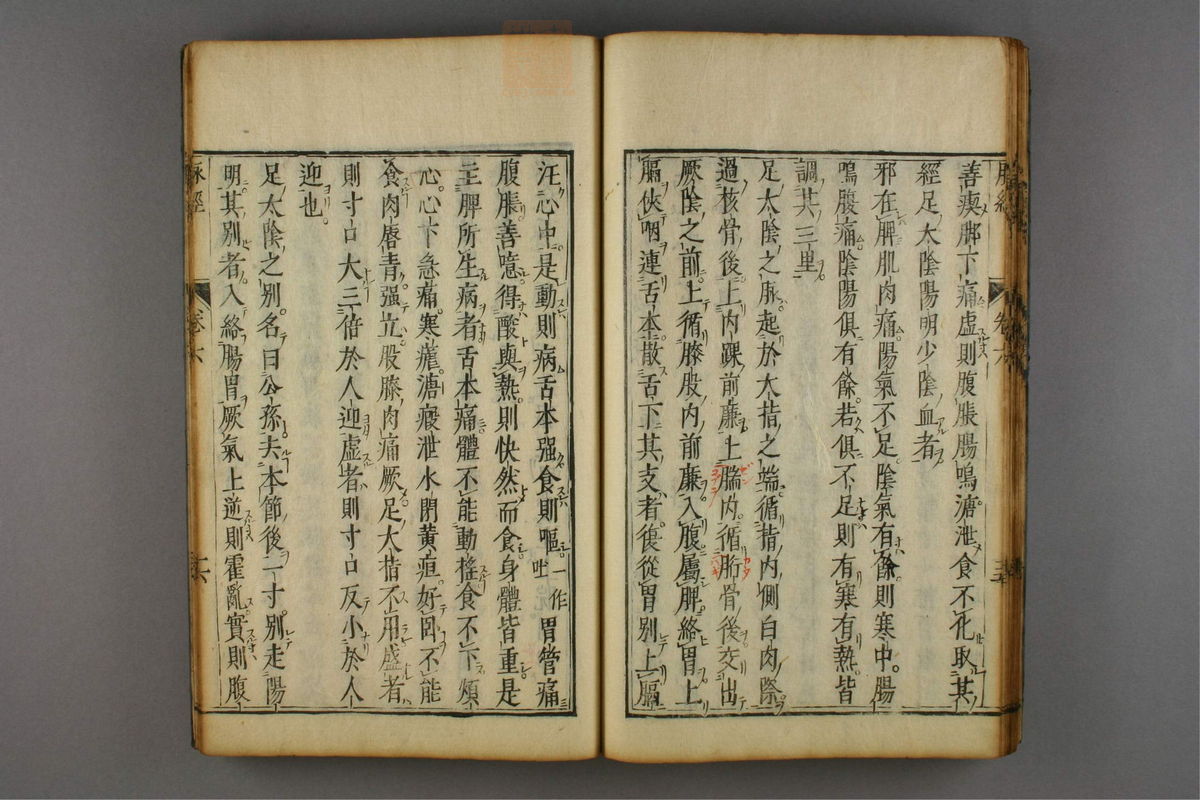 脉經
卷六
善瘈脚下痛虛則腹脹腸鳴溏泄食不化取其
經足太陰陽明少陰血者
邪在脾肌肉痛陽氣不足陰氣有餘則寒中腸
鳴腹痛陰陽俱有餘若俱不足則有寒有熱皆
調其三里
足太陰之脉起於大指之端循指內側白肉際
過核骨後上內踝前廉上腨內循䯒骨後交出
厥陰之前上循膝股內前廉入腹屬脾絡胃上
膈俠咽連舌本散舌下其支者復從胃別上膈
注心中是動則病舌本强食則嘔一作吐胃管痛
腹脹善噫得酸與熱則快然而食身體皆重是
主脾所生病者舌本痛體不能動搖食不下煩
心心下急痛寒瘧溏瘕泄水閉黃疸好卧不能
食肉唇青强立股膝肉痛厥足大指不用盛者
則寸口大三倍於人迎虛者則寸口反小於人
迎也
足太陰之別名曰公孫去本節後一寸別走陽
明其別者入絡腸胃厥氣上逆則霍亂實則腹
脉經
卷六